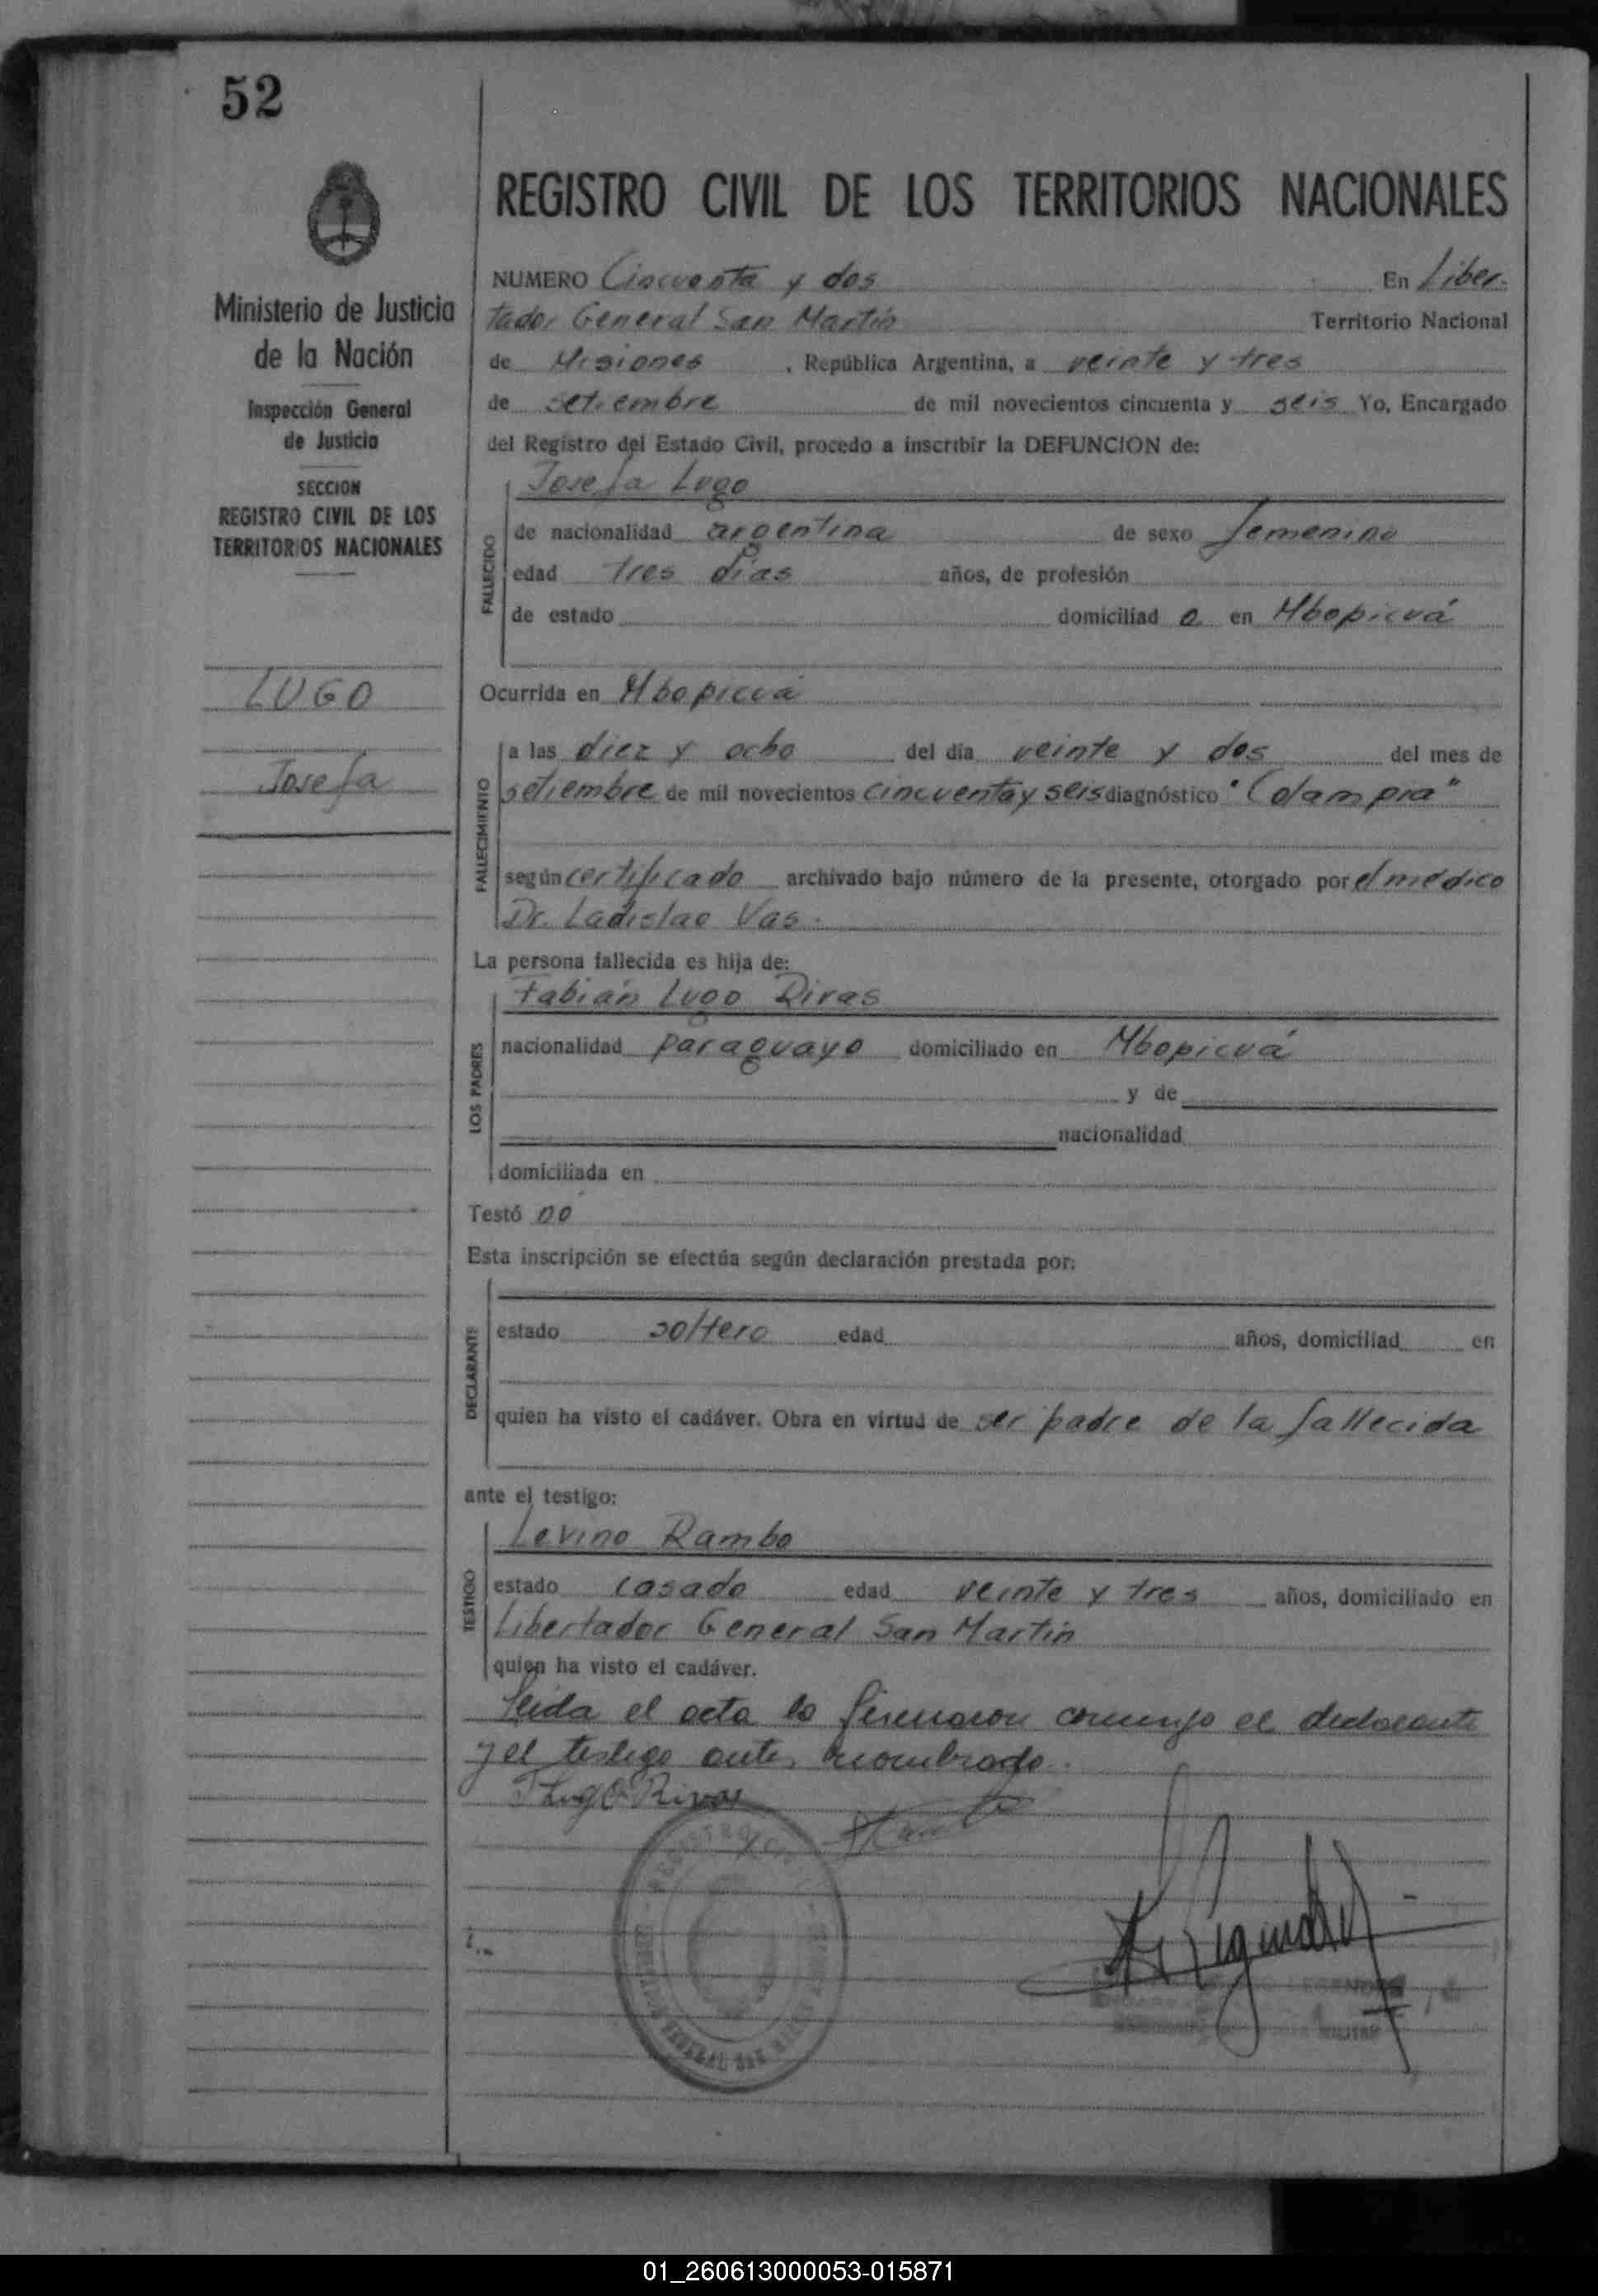 52
REGISTRO CIVIL DE LOS TERRITORIOS NACIONALES
Ministerio de Justicia
de la Nación
Inspección General
de Justicia
SECCION
REGISTRO CIVIL DE LOS
TERRITORIOS NACIONALES
LUGO
Josefa
NUMERO Cincuenta y dos En Liber-
tador General San Martín Territorio Nacional
de Misiones, República Argentina, a veinte y tres
de setiembre de mil novecientos cincuenta y seis Yo, Encargado
del Registro del Estado Civil, procedo a inscribir la DEFUNCION de:
Josefa Lugo
FALLECIDO
de nacionalidad argentina de sexo femenino
edad tres días años, de profesión
de estado domiciliad a en Mbopicuá
Ocurrida en Mbopicuá
FALLECIMIENTO
a las diez y ocho del día veinte y dos del mes de
setiembre de mil novecientos cincuenta y seis diagnóstico "Colampia"
según certificado archivado bajo número de la presente, otorgado por el médico
Dr. Ladislao Vas.
La persona fallecida es hija de:
Fabián Lugo Rivas
LOS PADRES
nacionalidad paraguayo domiciliado en Mbopicuá
y de
nacionalidad
domiciliada en
Testó no
Esta inscripción se efectúa según declaración prestada por:
DECLARANTE
estado soltero edad años, domiciliad en
quien ha visto el cadáver. Obra en virtud de ser padre de la fallecida
ante el testigo:
Levino Rambo
TESTIGO
estado casado edad veinte y tres años, domiciliado en
Libertador General San Martín
quien ha visto el cadáver.
Leida el acta la firmaron conmigo el declarante
y el testigo antes nombrado.
F Lugo Rivas
REGISTRO CIVIL
GENERAL SAN
01_260613000053-015871